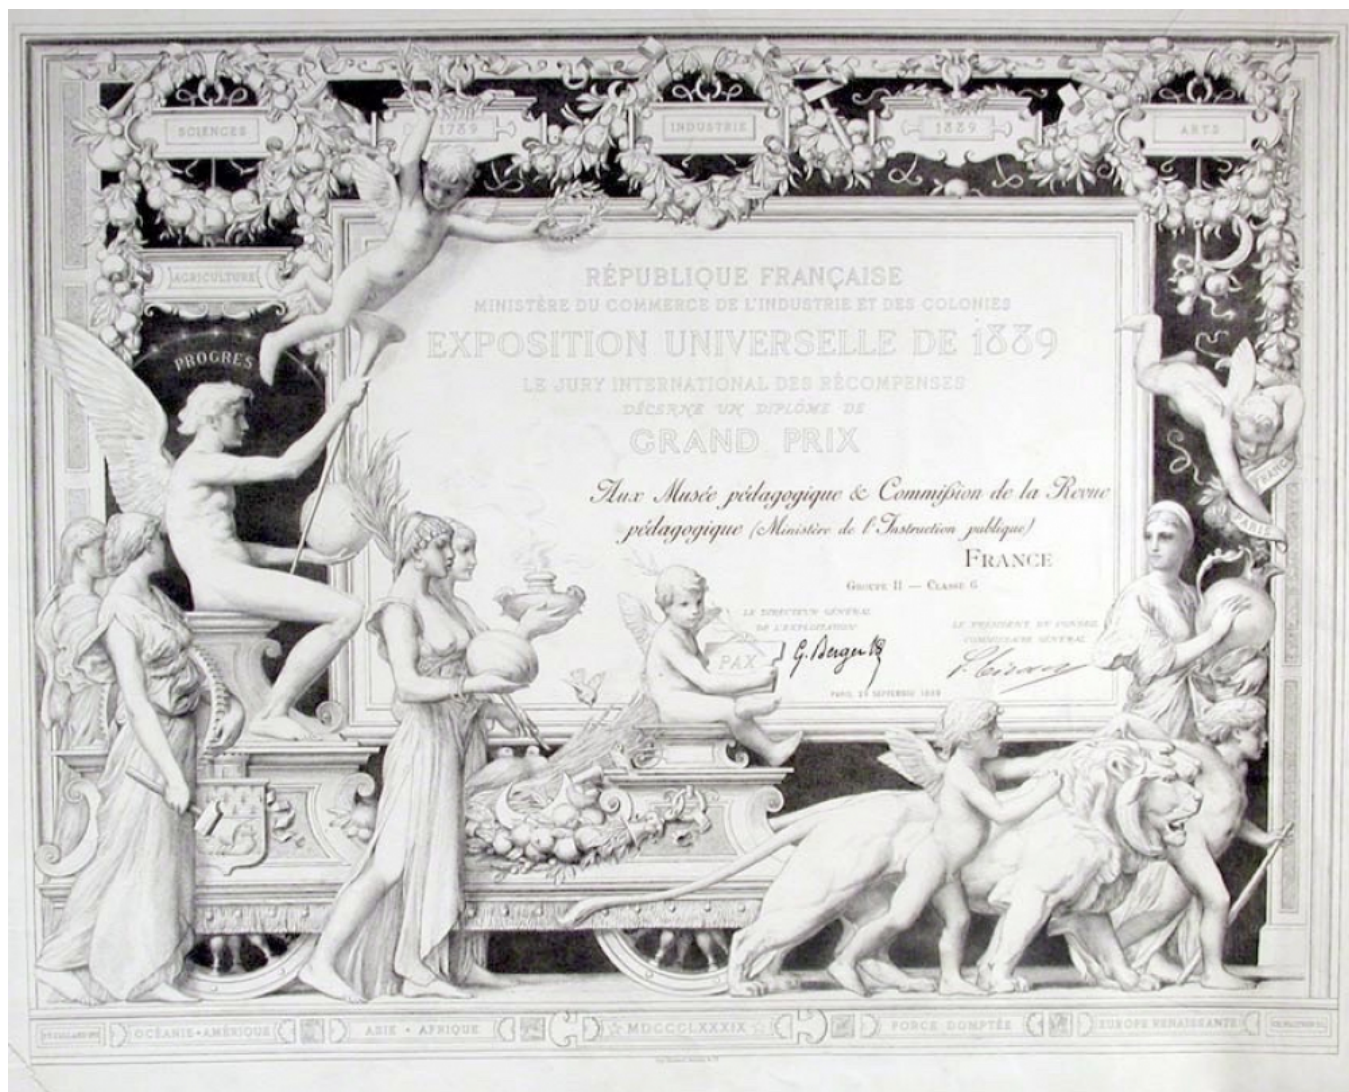 SCIENCES
1789
INDUSTRIE
1889
ARTS
AGRICULTURE
PROGRES
RÉPUBLIQUE FRANÇAISE
MINISTÈRE DU COMMERCE DE L'INDUSTRIE ET DES COLONIES
EXPOSITION UNIVERSELLE DE 1889
LE JURY INTERNATIONAL DES RÉCOMPENSES
DÉCERNE UN DIPLÔME DE
GRAND PRIX
Aux Musée pédagogique & Commißion de la Revue
pédagogique (Ministère de l'Instruction publique)
FRANCE
GROUPE II — CLASSE 6
LE DIRECTEUR GÉNÉRAL
DE L'EXPLOITATION
LE PRÉSIDENT DU CONSEIL
COMMISSAIRE GÉNÉRAL
G. Berger
PARIS 29 SEPTEMBRE 1889
PAX
FRANCE
PARIS
OCÉANIE • AMÉRIQUE
ASIE • AFRIQUE
MDCCCLXXXIX
FORCE DOMPTÉE
EUROPE RENAISSANTE